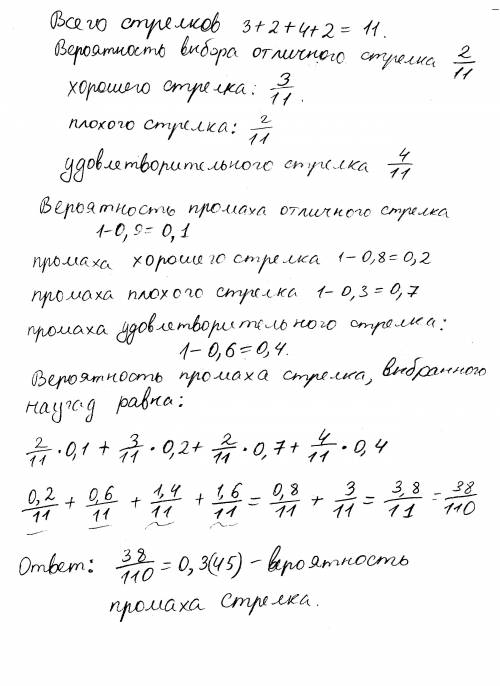 Всего стрелков 3+2+4+2 = 11.
Вероятность выбора отличного стрелка 2/11
хорошего стрелка: 3/11.
плохого стрелка: 2/11
удовлетворительного стрелка 4/11
Вероятность промаха отличного стрелка
1-0,9=0,1
промаха хорошего стрелка 1-0,8=0,2
промаха плохого стрелка 1-0,3=0,7
промаха удовлетворительного стрелка:
1-0,6=0,4.
Вероятность промаха стрелка, выбранного
наугад равна:
2/11 · 0,1 + 3/11 · 0,2 + 2/11 · 0,7 + 4/11 · 0,4
0,2/11 + 0,6/11 + 1,4/11 + 1,6/11 = 0,8/11 + 3/11 = 3,8/11 = 38/110
Ответ: 38/110 = 0,3(45) - вероятность
промаха стрелка.